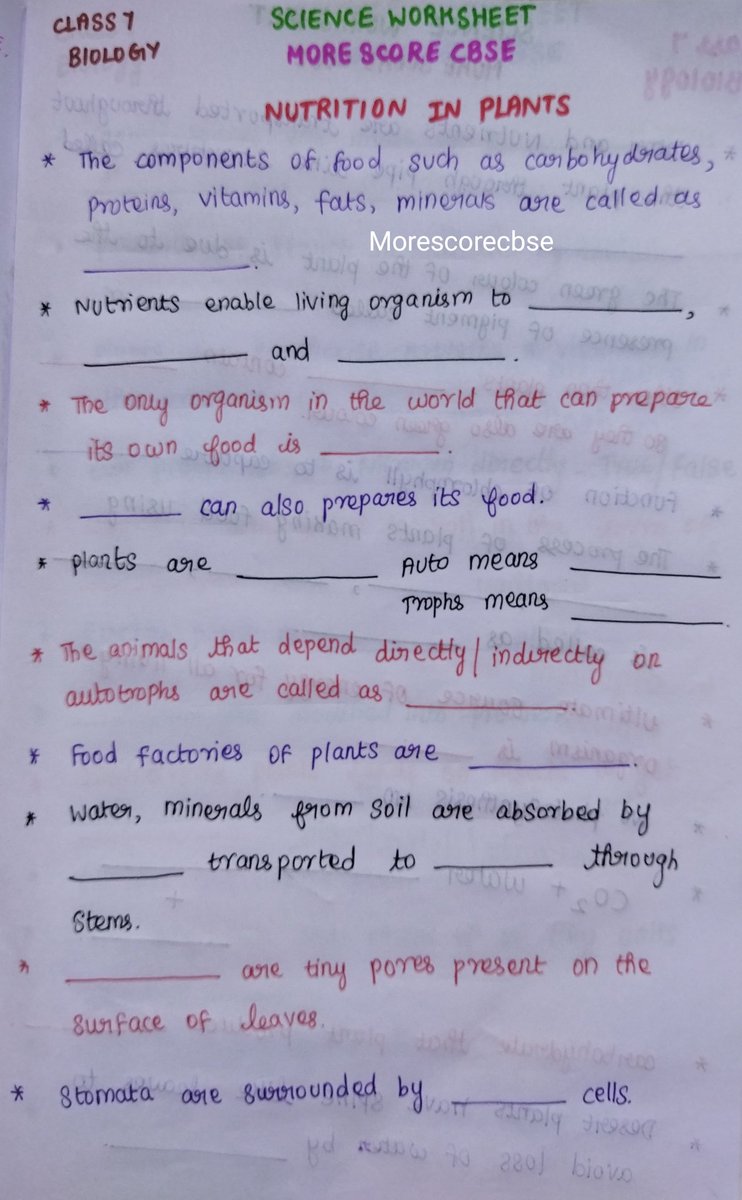 CLASS 7
BIOLOGY
SCIENCE WORKSHEET
MORE SCORE CBSE
NUTRITION IN PLANTS
* The components of food such as carbohydrates,
proteins, vitamins, fats, minerals are called as
Morescorecbse
____________.
* Nutrients enable living organism to ____________,
____________ and ____________.
* The only organism in the world that can prepare
its own food is ____________.
* ________ can also prepares its food.
* plants are ____________ Auto means ____________
Trophs means ____________.
* The animals that depend directly/indirectly on
autotrophs are called as ____________.
* Food factories of plants are ____________.
* Water, minerals from soil are absorbed by
________ transported to ________ through
stems.
* ____________ are tiny pores present on the
surface of leaves.
* Stomata are surrounded by ________ cells.